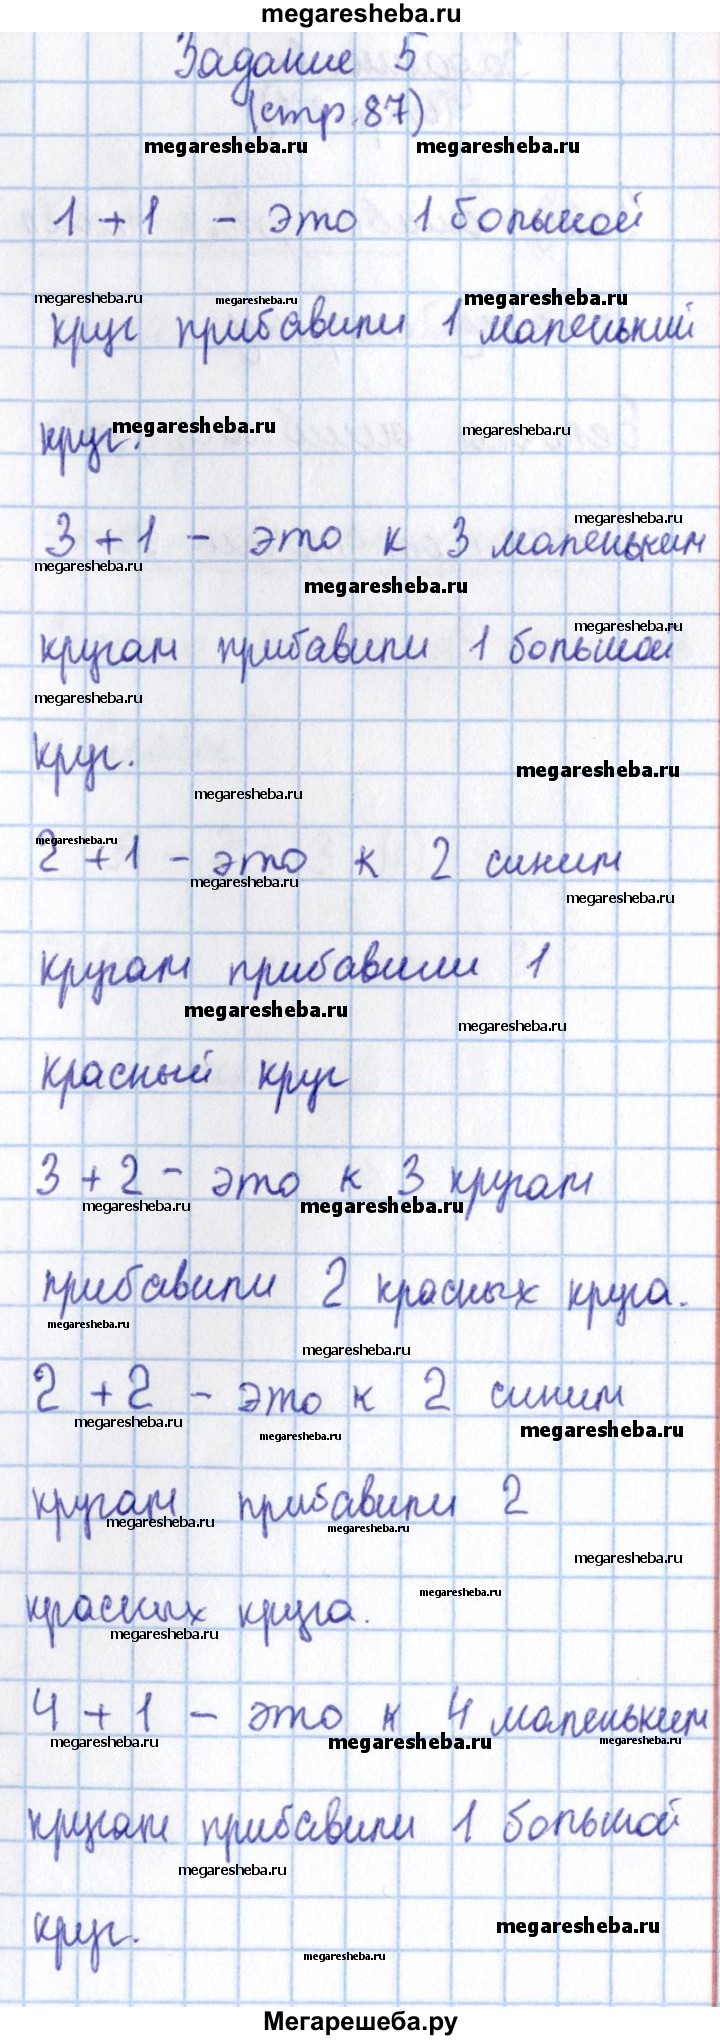 megaresheba.ru
Задание 5
(стр.87)
megaresheba.ru megaresheba.ru
1 + 1 - это 1 большой
megaresheba.ru megaresheba.ru megaresheba.ru
круг прибавили 1 маленький
megaresheba.ru megaresheba.ru
круг.
megaresheba.ru
3 + 1 - это к 3 маленьким
megaresheba.ru megaresheba.ru
megaresheba.ru
кругам прибавили 1 большой
megaresheba.ru
круг.
megaresheba.ru
megaresheba.ru
megaresheba.ru
2 + 1 - это к 2 синим
megaresheba.ru megaresheba.ru
кругам прибавили 1
megaresheba.ru megaresheba.ru
красный круг
3 + 2 - это к 3 кругам
megaresheba.ru megaresheba.ru
прибавили 2 красных круга.
megaresheba.ru
megaresheba.ru
2 + 2 - это к 2 синим
megaresheba.ru megaresheba.ru megaresheba.ru
кругам прибавили 2
megaresheba.ru megaresheba.ru
megaresheba.ru
megaresheba.ru
красных круга.
megaresheba.ru
4 + 1 - это к 4 маленьким
megaresheba.ru megaresheba.ru megaresheba.ru
кругам прибавили 1 большой
megaresheba.ru
круг.
megaresheba.ru
megaresheba.ru
Мегарешеба.ру